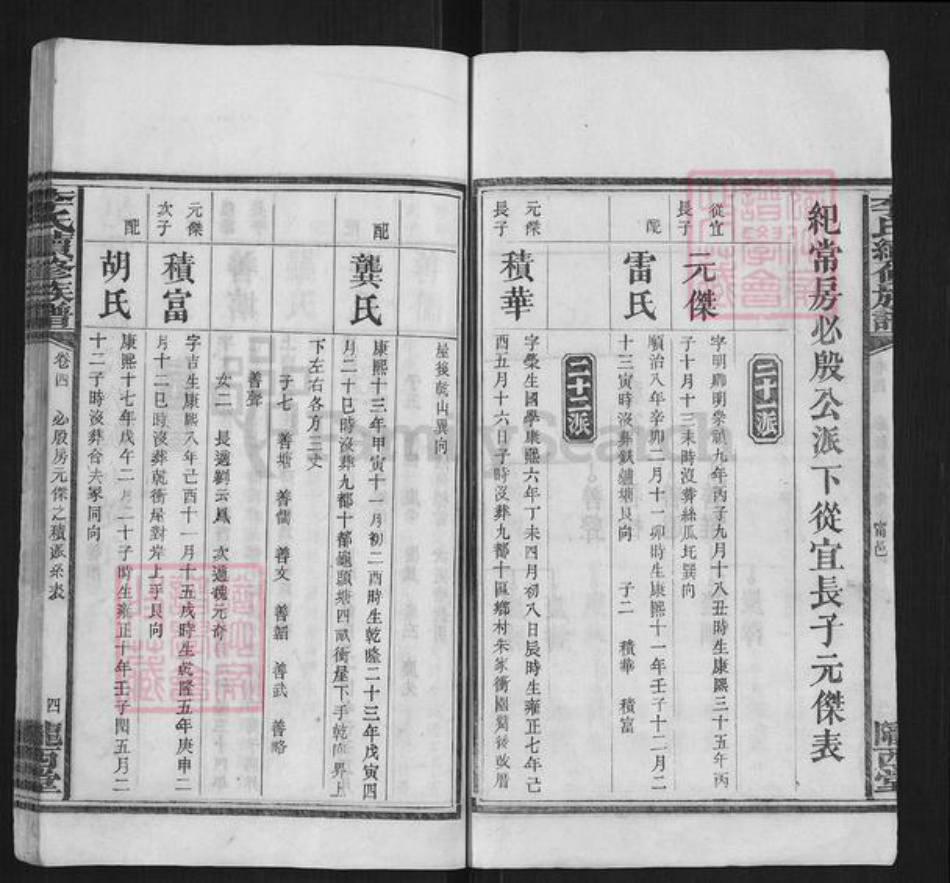 紀常房必殷公派下從宜長子元傑表
二十派
從宜長子
元傑
字明卿明崇禎九年丙子九月十八丑時生康熙三十五年丙
子十月十三未時沒葬絲瓜圫巽向
配
雷氏
順治八年辛卯二月十一卯時生康熙十一年壬子十二月二
十三寅時沒葬鐵爐塘艮向 子二 積華 積富
二十一派
元傑長子
積華
字榮生國學康熙六年丁未四月初八日辰時生雍正七年己
酉五月十六日子時沒葬九都十區鄉村朱家衝園蔔後改厝
屋後乾山巽向
配
龔氏
康熙十三年甲寅十一月初二酉時生乾隆二十三年戊寅四
月二十巳時沒葬九都十都龜頭塘四畝衝屋下手乾向界上
下左右各方三丈
子七 善塘 善儒 善文 善韶 善武 善略
善聲
女二 長適劉云鳳 次適魏元奇
元傑次子
積富
字吉生康熙八年己酉十一月十五戌時生乾隆五年庚申二
月十二巳時沒葬乾衝屋對岸上手艮向
配
胡氏
康熙十七年戊午二月二十子時生雍正十年壬子閏五月二
十二子時沒葬合夫冢同向
李氏續修族譜
卷四
必殷房元傑之積派系表
四
隴西堂
李氏續修族譜
甯邑
隴西堂
FamilySearch